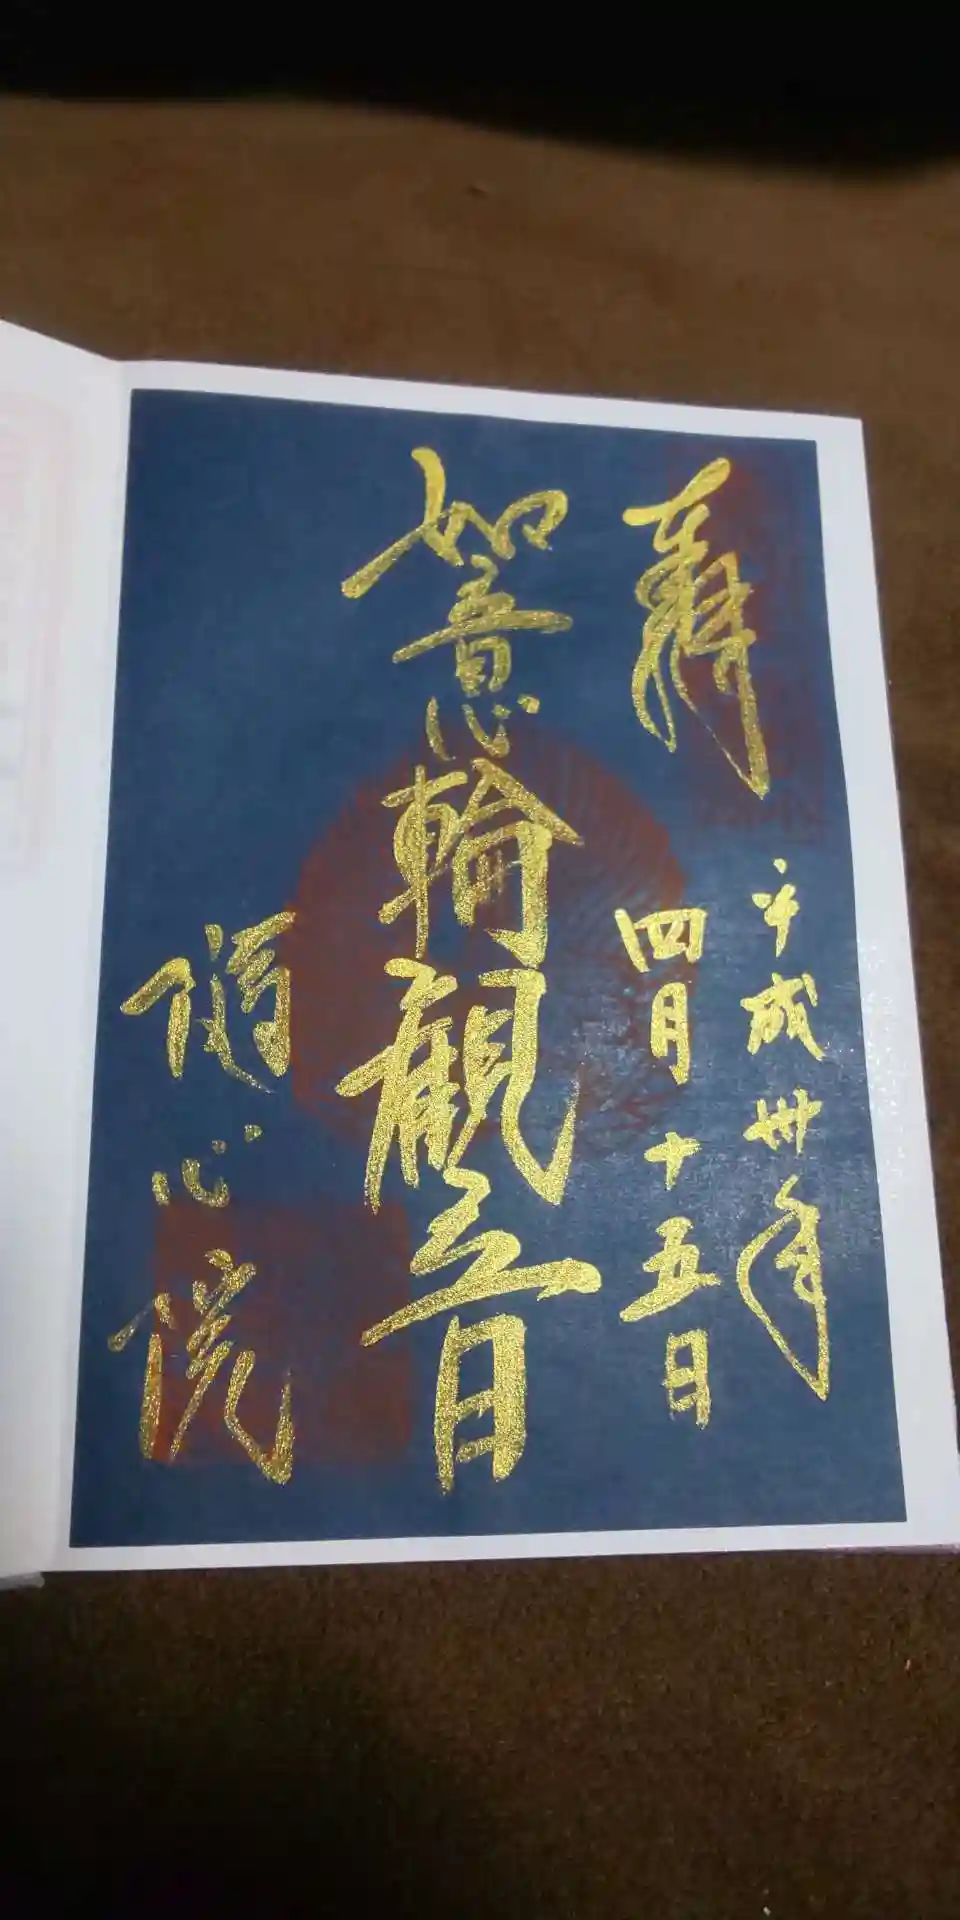 奉拝
平成卅年
四月十五日
如意輪觀音
随心院